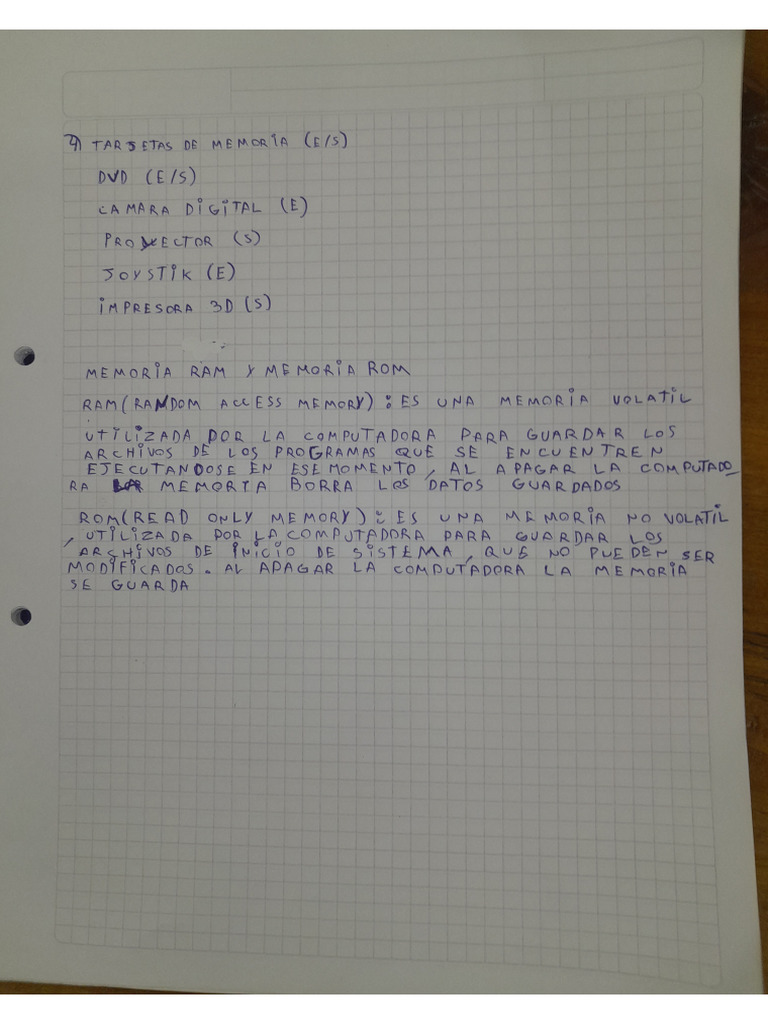 7) TARJETAS DE MEMORIA (E/S)
DVD (E/S)
CAMARA DIGITAL (E)
PROYECTOR (S)
JOYSTIK (E)
IMPRESORA 3D (S)
MEMORIA RAM Y MEMORIA ROM
RAM (RANDOM ACCESS MEMORY) : ES UNA MEMORIA VOLATIL
UTILIZADA POR LA COMPUTADORA PARA GUARDAR LOS
ARCHIVOS DE LOS PROGRAMAS QUE SE ENCUENTREN
EJECUTANDOSE EN ESE MOMENTO, AL APAGAR LA COMPUTADO_
RA LA MEMORIA BORRA LOS DATOS GUARDADOS
ROM (READ ONLY MEMORY) : ES UNA MEMORIA NO VOLATIL
, UTILIZADA POR LA COMPUTADORA PARA GUARDAR LOS
ARCHIVOS DE INICIO DE SISTEMA, QUE NO PUEDEN SER
MODIFICADOS. AL APAGAR LA COMPUTADORA LA MEMORIA
SE GUARDA